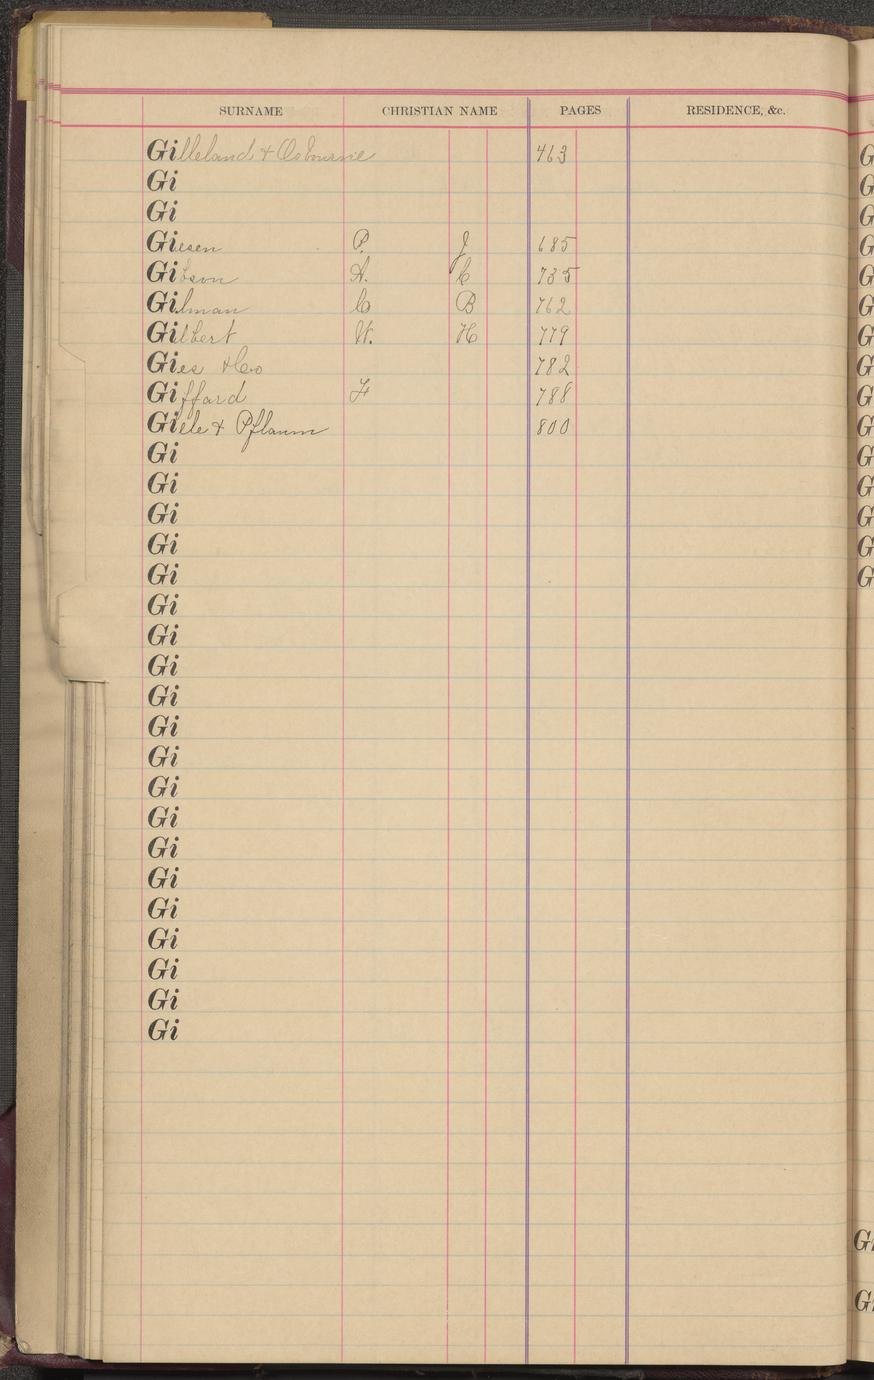 SURNAME CHRISTIAN NAME PAGES RESIDENCE, &c.
Gilleland & Osbourne 463
Gi
Gi
Giesen P. J 685
Gibson A. C 735
Gilman C B 762
Gilbert W. H 779
Gies & Co 782
Giffard F 788
Giele & Pflaum 800
Gi
Gi
Gi
Gi
Gi
Gi
Gi
Gi
Gi
Gi
Gi
Gi
Gi
Gi
Gi
Gi
Gi
Gi
Gi
Gi